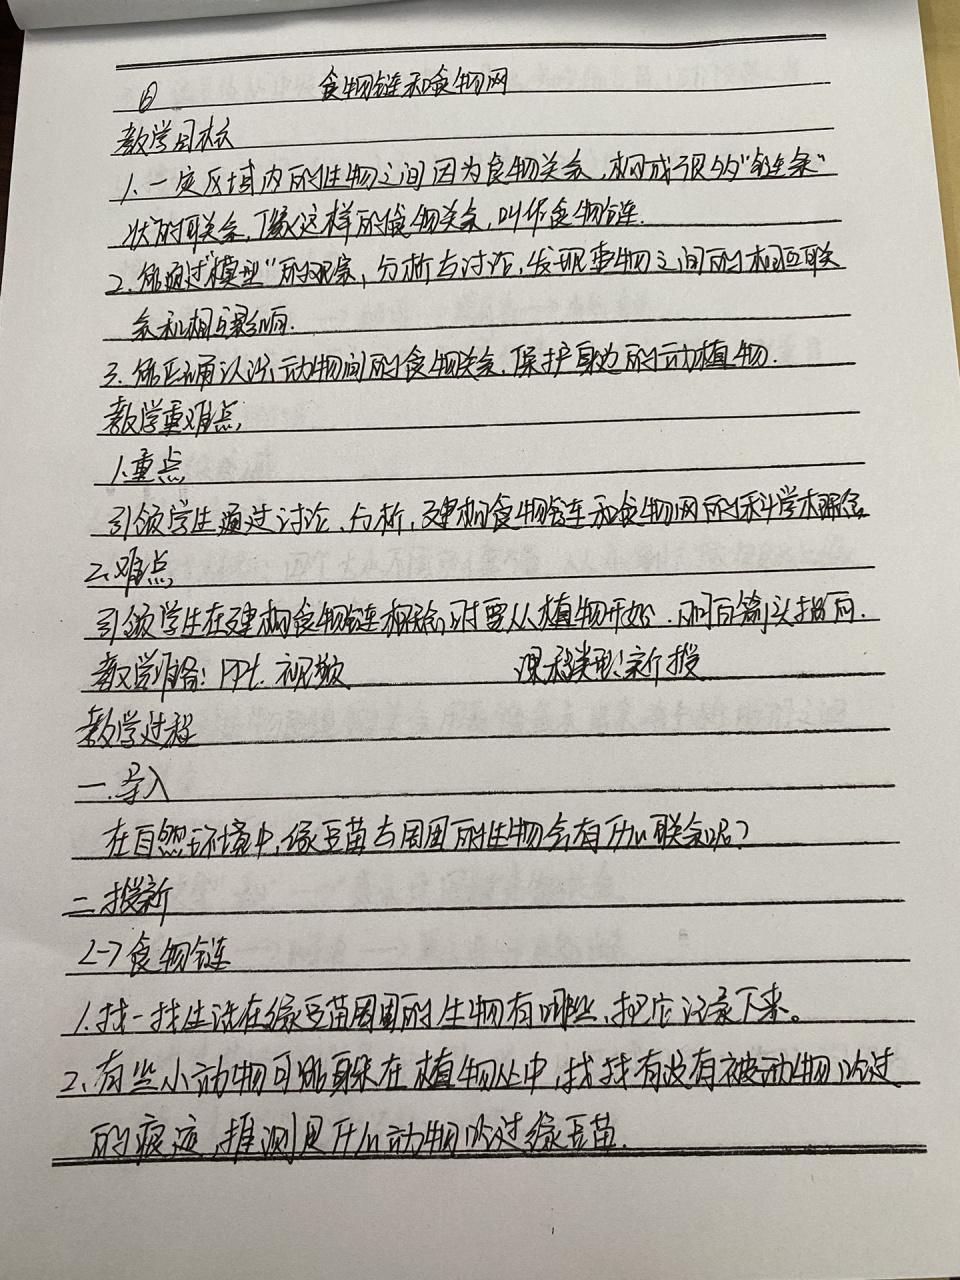 ⑪ 食物链和食物网
教学目标
1、一定区域内的生物之间因为食物关系,构成了很多"链条"
状的联系,像这样的食物关系,叫作食物链.
2.能通过"模型"的观察,分析与讨论,发现事物之间的相互联
系和相互影响.
3.能正确认识动物间的食物联系.保护身边的动植物.
教学重难点,
1.重点
引领学生通过讨论、分析,建构食物链和食物网的科学概念
2.难点
引领学生在建构食物链概念时要从植物开始.及时用箭头指向.
教学准备:PPt. 视频 课程类型:新授
教学过程
一.导入
在自然环境中,绿豆苗与周围的生物会有什么联系呢?
二.授新
<一>食物链
1.找一找生活在绿豆苗周围的生物有哪些,把它记录下来。
2、有些小动物可能躲在植物丛中,找找有没有被动物吃过
的痕迹,推测是什么动物吃过绿豆苗.